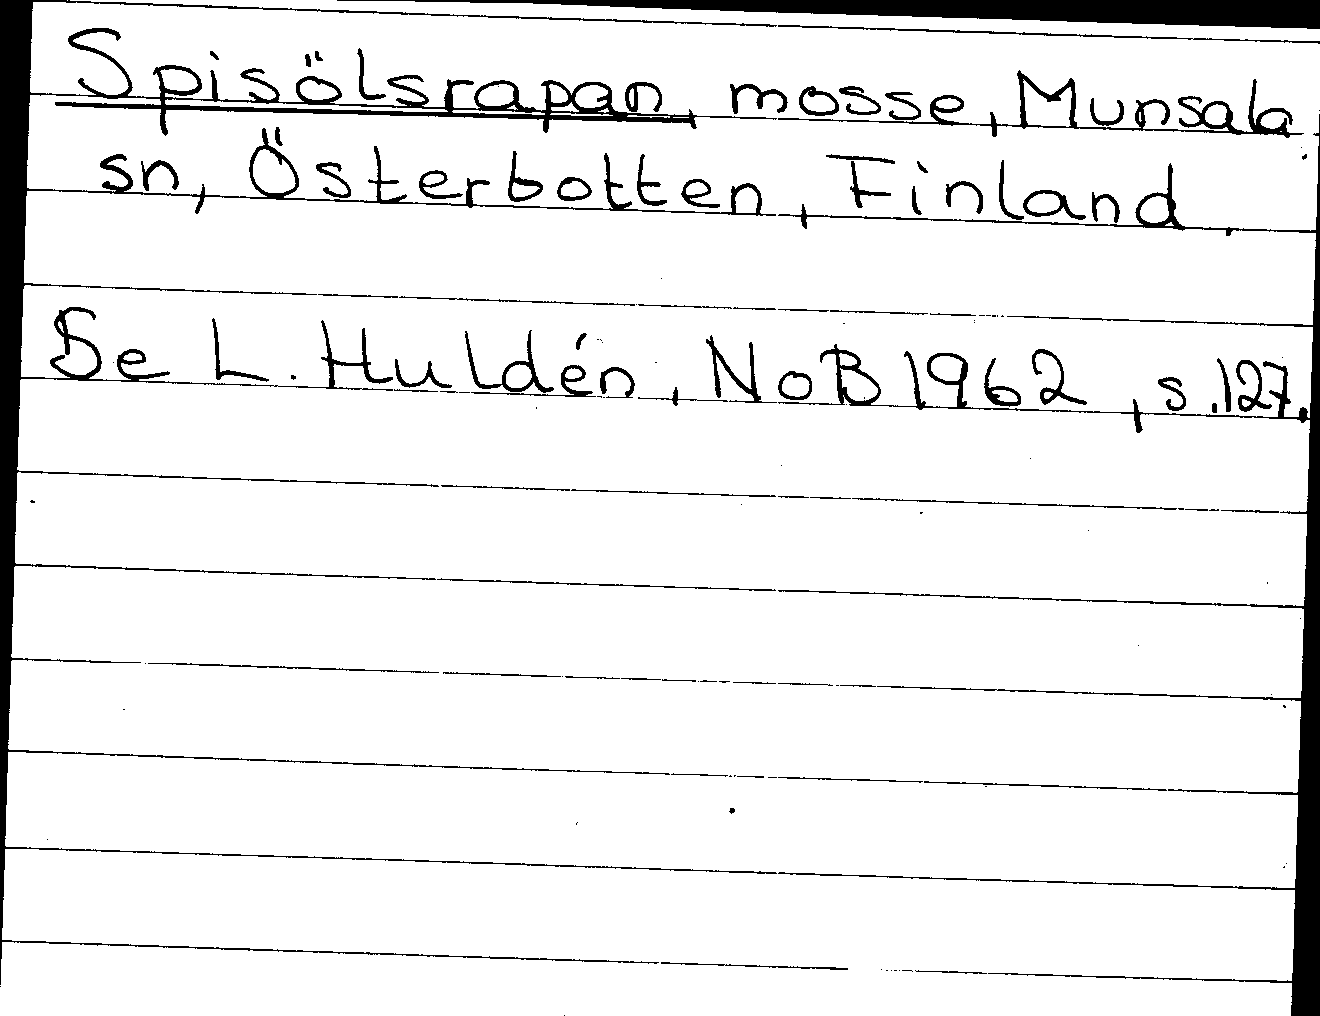 Spisölsrapan, mosse, Munsala
sn, Österbotten, Finland.
Se L. Huldén, NoB 1962, s. 127.